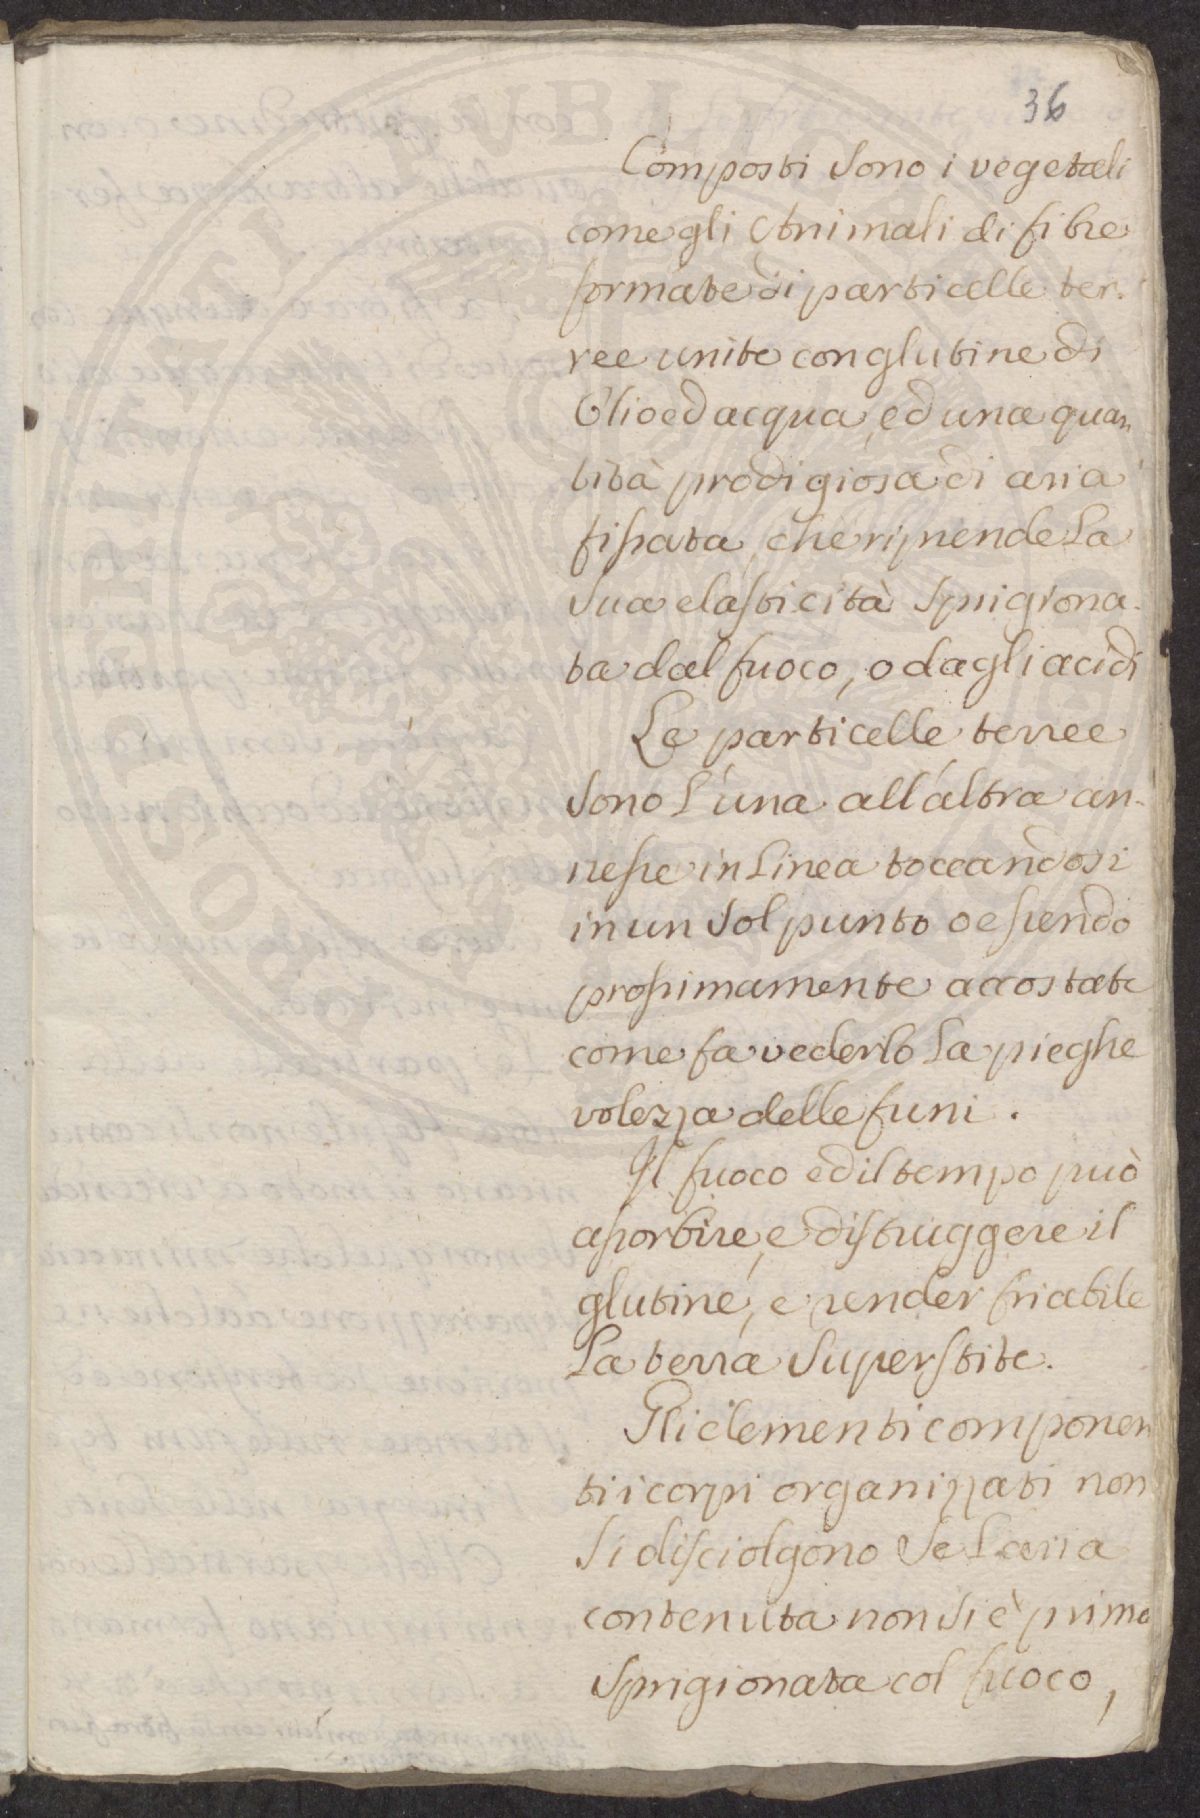 36
Composti sono i vegetali
come gli Animali di fibre
formate di particelle ter-
ree unite con glutine di
Olio ed acqua, ed una quan
tità prodigiosa di aria
fissata, che riprende la
sua elasticità sprigiona-
ta dal fuoco, o dagli acidi
Le particelle terree
sono l'una all'altra an-
nesse in linea toccandosi
in un sol punto o essendo
prossimamente accostate
come fa vederlo la pieghe
volezza delle funi.
Il fuoco ed il tempo può
assorbire, e distruggere il
glutine, e render friabile
la terra superstite.
Gli elementi componen
ti i corpi organizzati non
si disciolgono se l'aria
contenuta non si è prima
sprigionata col fuoco,